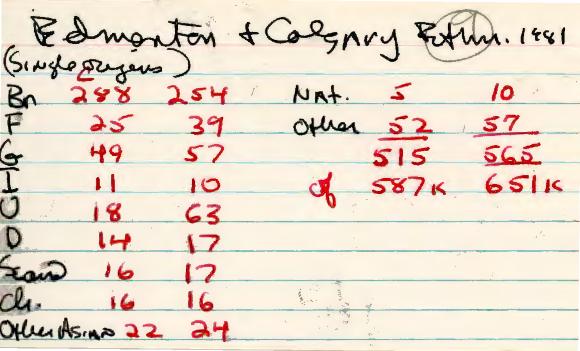 Edmonton + Calgary Ethn. 1981
(Single Origins)
Br 288 254
F 25 39
G 49 57
I 11 10
U 18 63
D 14 17
Scand 16 17
Ch. 16 16
Other Asian 22 24
Nat. 5 10
Other 52 57
515 565
of 587K 651K